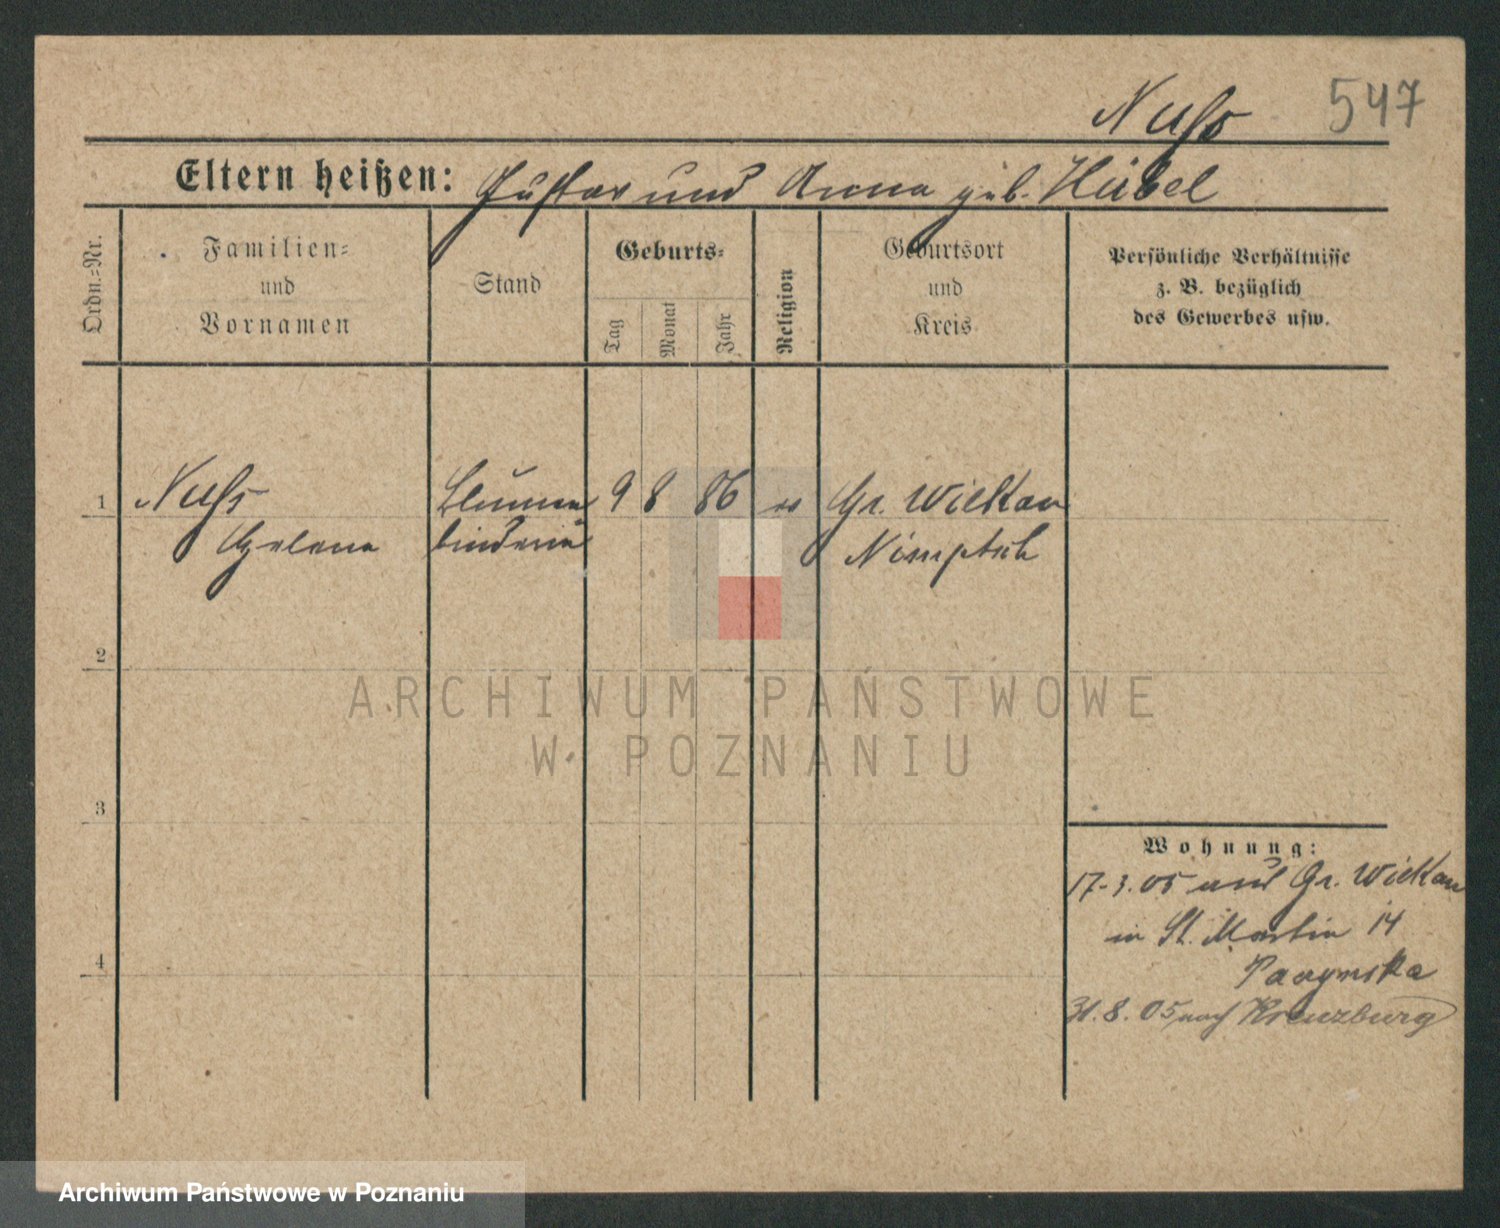 Nuſs 547
Eltern heißen: Gustav und Anna geb. Hübel
Ordn.=Nr.
Familien=
und
Vornamen
Stand
Geburts=
Tag
Monat
Jahr
Religion
Geburtsort
und
Kreis
Persönliche Verhältnisse
z. B. bezüglich
des Gewerbes usw.
1 Nuſs Blumen 9 8 86 Gr. Wilkau
Helene binderin Nimptsch
2
3
4
Wohnung:
17.3.05 aus Gr. Wilkau
in St. Martin 14
31.8.05 nach Kreuzburg
ARCHIWUM PAŃSTWOWE
W POZNANIU
Archiwum Państwowe w Poznaniu